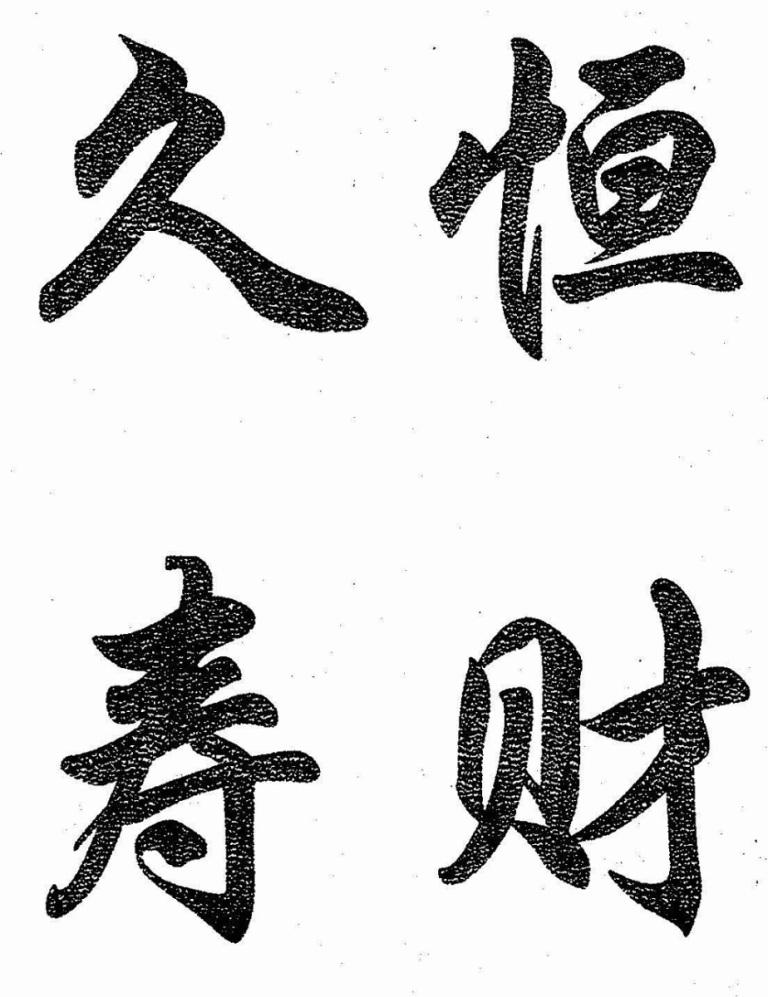 久恒
寿财